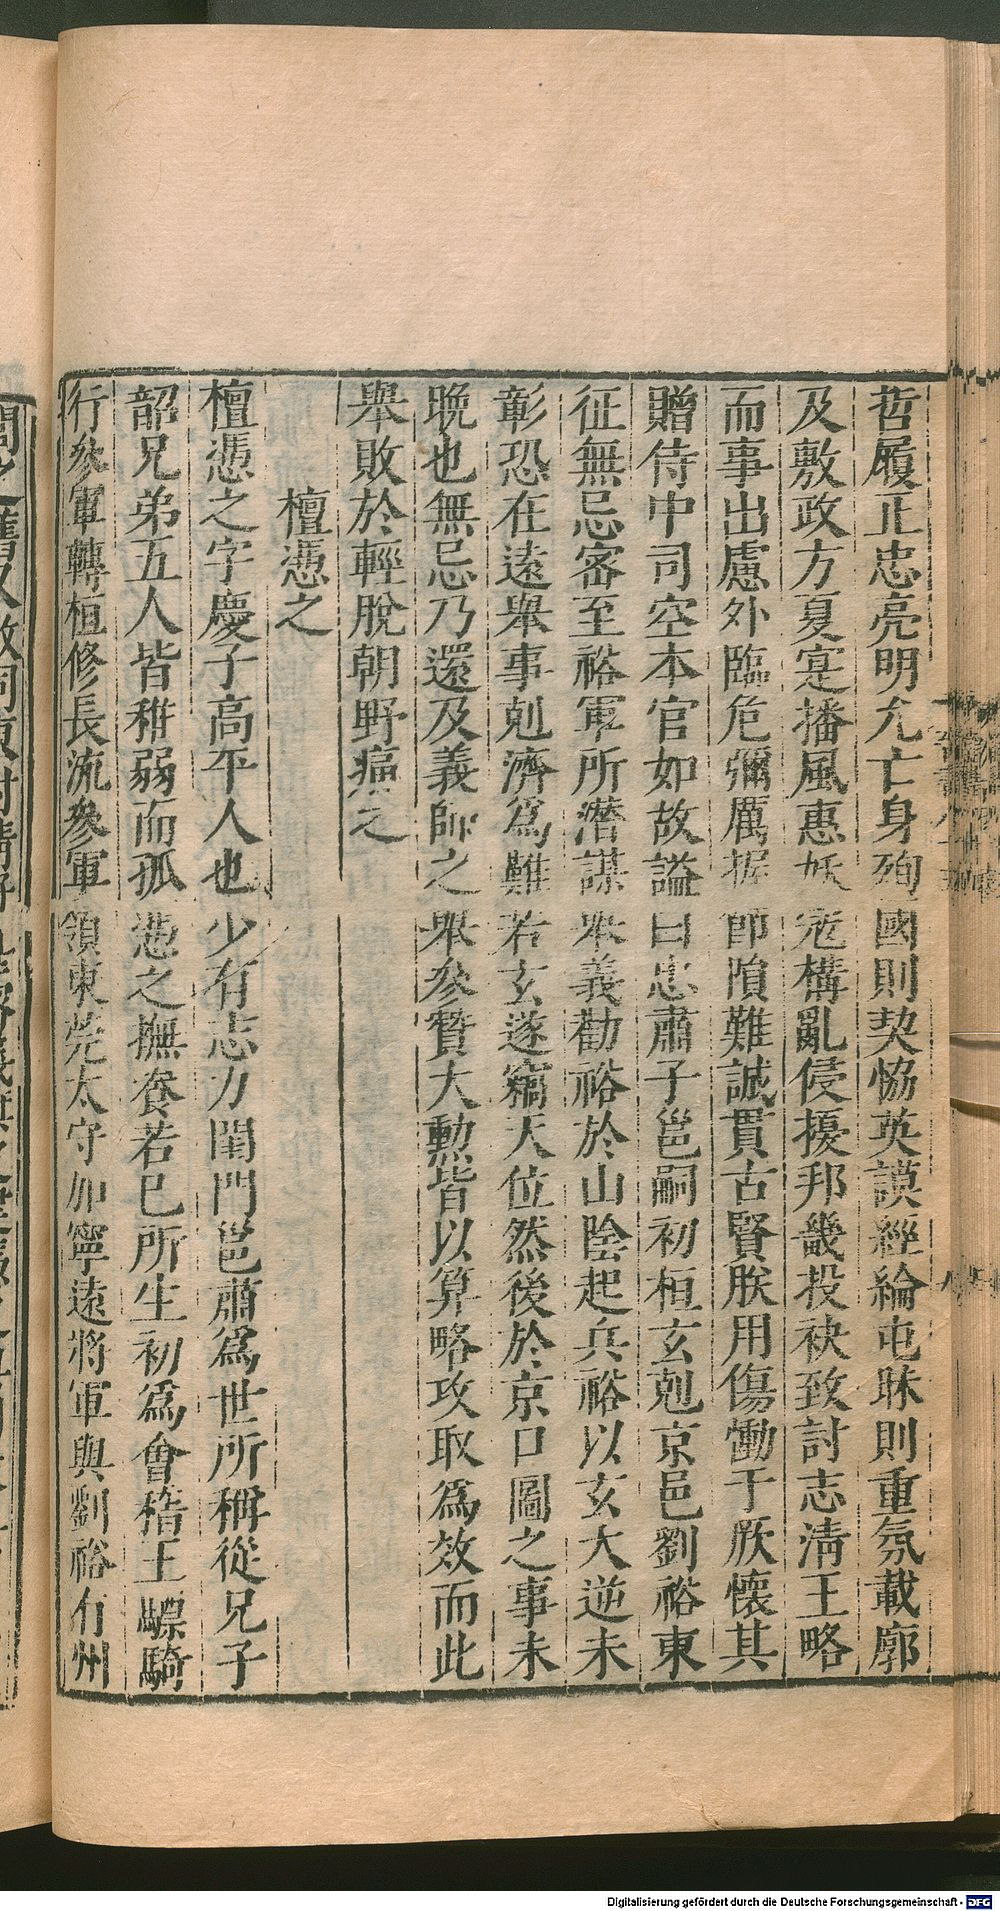 哲履正忠亮明允亡身殉國則契恊英謨經綸屯昧則重氛載廓
及敷政方夏寔播風惠妖寇構亂侵擾邦畿投袂致討志清王略
而事出慮外臨危彌厲握節隕難誠貫古賢朕用傷慟于厥懷其
贈侍中司空本官如故謚曰忠肅子邕嗣初桓玄剋京邑劉裕東
征無忌密至裕軍所潛謀舉義勸裕於山陰起兵裕以玄大逆未
彰恐在遠舉事剋濟爲難若玄遂竊天位然後於京口圖之事未
晩也無忌乃還及義師之舉參贊大勲皆以算略攻取爲效而此
舉敗於輕脫朝野痛之
檀憑之
檀憑之字慶子高平人也少有志力閨門邕肅爲世所稱從兄子
韶兄弟五人皆稚弱而孤憑之撫養若巳所生初爲會稽王驃騎
行參軍轉桓修長流參軍領東莞太守加寧遠將軍與劉裕有州
Digitalisierung gefördert durch die Deutsche Forschungsgemeinschaft - DFG